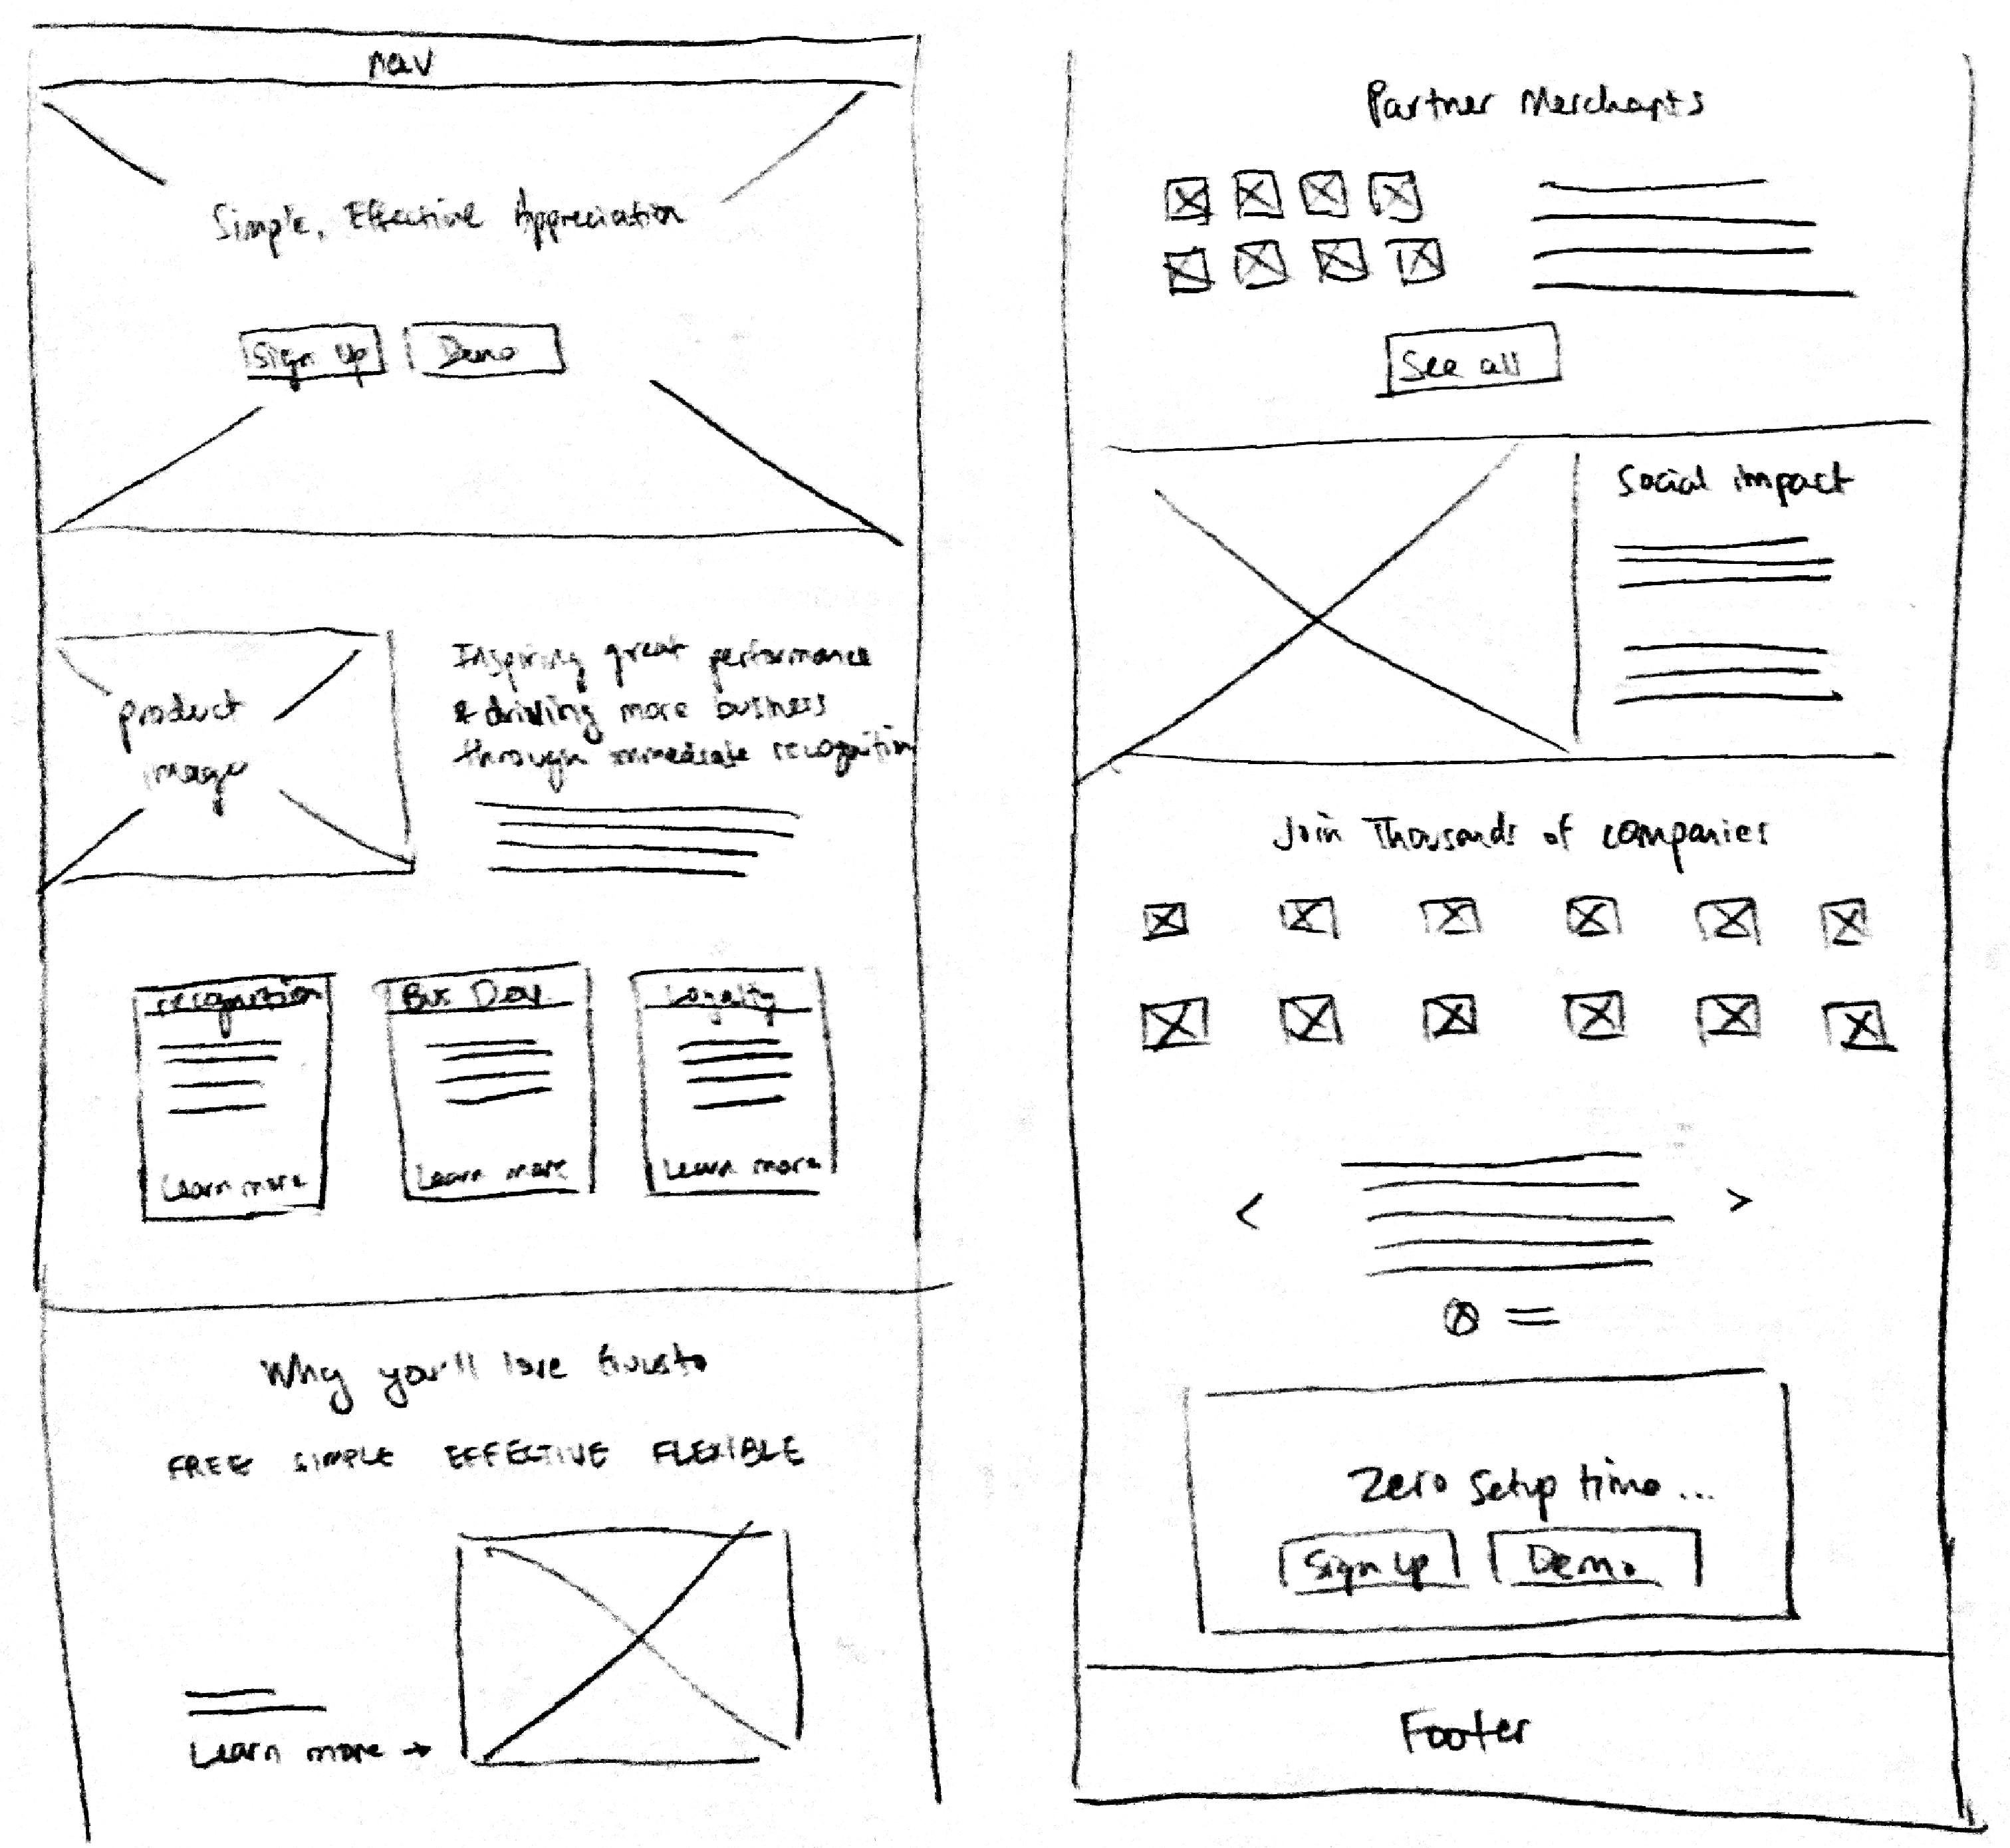 nav
Simple, Effective Appreciation
Sign Up
Demo
product
image
Inspiring great performance
& driving more business
through immediate recognition
recognition
Bus Dev
Loyalty
Learn more
Learn more
Learn more
Why you'll love
FREE SIMPLE EFFECTIVE FLEXIBLE
Learn more →
Partner Merchants
See all
Social impact
Join Thousands of companies
<
>
Zero setup time...
Sign up
Demo
Footer